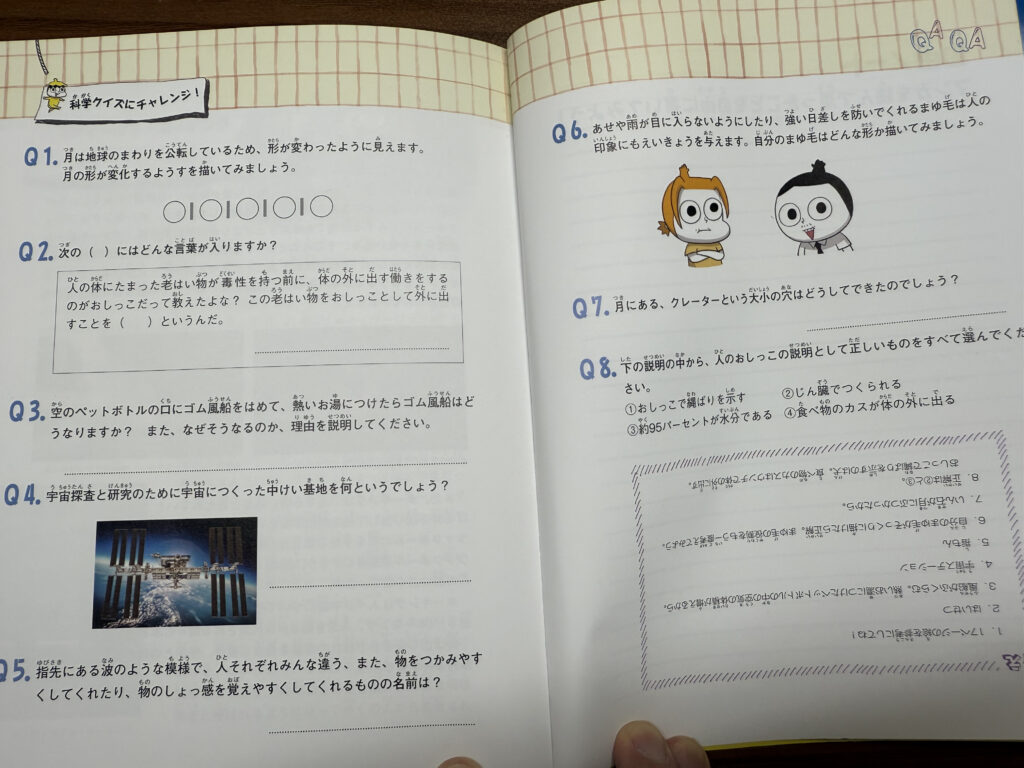 科学クイズにチャレンジ!
Q1. 月は地球のまわりを公転しているため、形が変わったように見えます。
月の形が変化するようすを描いてみましょう。
Q2. 次の( )にはどんな言葉が入りますか?
人の体にたまった老はい物が毒性を持つ前に、体の外に出す働きをする
のがおしっこだって教えたよな? この老はい物をおしっことして外に出
すことを( )というんだ。
Q3. 空のペットボトルの口にゴム風船をはめて、熱いお湯につけたらゴム風船はど
うなりますか? また、なぜそうなるのか、理由を説明してください。
Q4. 宇宙探査と研究のために宇宙につくった中けい基地を何というでしょう?
Q5. 指先にある波のような模様で、人それぞれみんな違う、また、物をつかみやす
くしてくれたり、物のしょっ感を覚えやすくしてくれるものの名前は?
QA QA
Q6. あせや雨が目に入らないようにしたり、強い日差しを防いでくれるまゆ毛は人の
印象にもえいきょうを与えます。自分のまゆ毛はどんな形か描いてみましょう。
Q7. 月にある、クレーターという大小の穴はどうしてできたのでしょう?
Q8. 下の説明の中から、人のおしっこの説明として正しいものをすべて選んでくだ
さい。
①おしっこで縄ばりを示す ②じん臓でつくられる
③約95パーセントが水分である ④食べ物のカスが体の外に出る
1. 17ページの絵を参考にしてね!
2. はいせつ
3. 風船がふくらむ。熱いお湯につけたペットボトルの中の空気の体積が増えるから。
4. 宇宙ステーション
5. 指もん
6. 自分のまゆ毛がそっくりに描けたら正解。まゆ毛の役割をもう一度考えてみよう。
7. いん石が月にぶつかったから。
8. 正解は②と③。
おしっこで縄ばりを示すのは犬。食べ物のカスはウンチで体の外に出す。